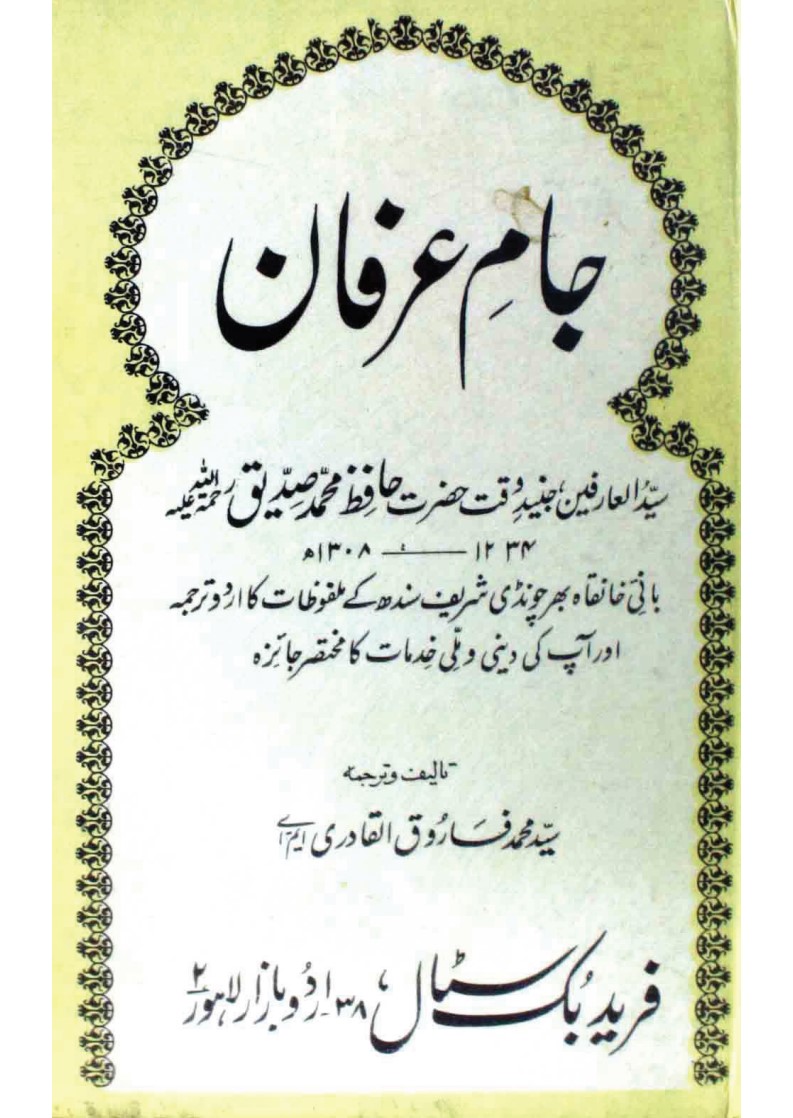 جامِ عرفان
سیّدُ العارفین، جنیدِ وقت حضرت حافظ محمّد صدّیق رحمۃ اللہ علیہ
۱۲۳۴ — : — ۱۳۰۸ھ
بانیِ خانقاہ بھرچونڈی شریف سندھ کے ملفوظات کا اردو ترجمہ
اور آپ کی دینی و ملّی خدمات کا مختصر جائزہ
تالیف و ترجمہ
سیّد محمد فاروق القادری ایم اے
فرید بُک سٹال، ۳۸۔ اردو بازار لاہور ۲